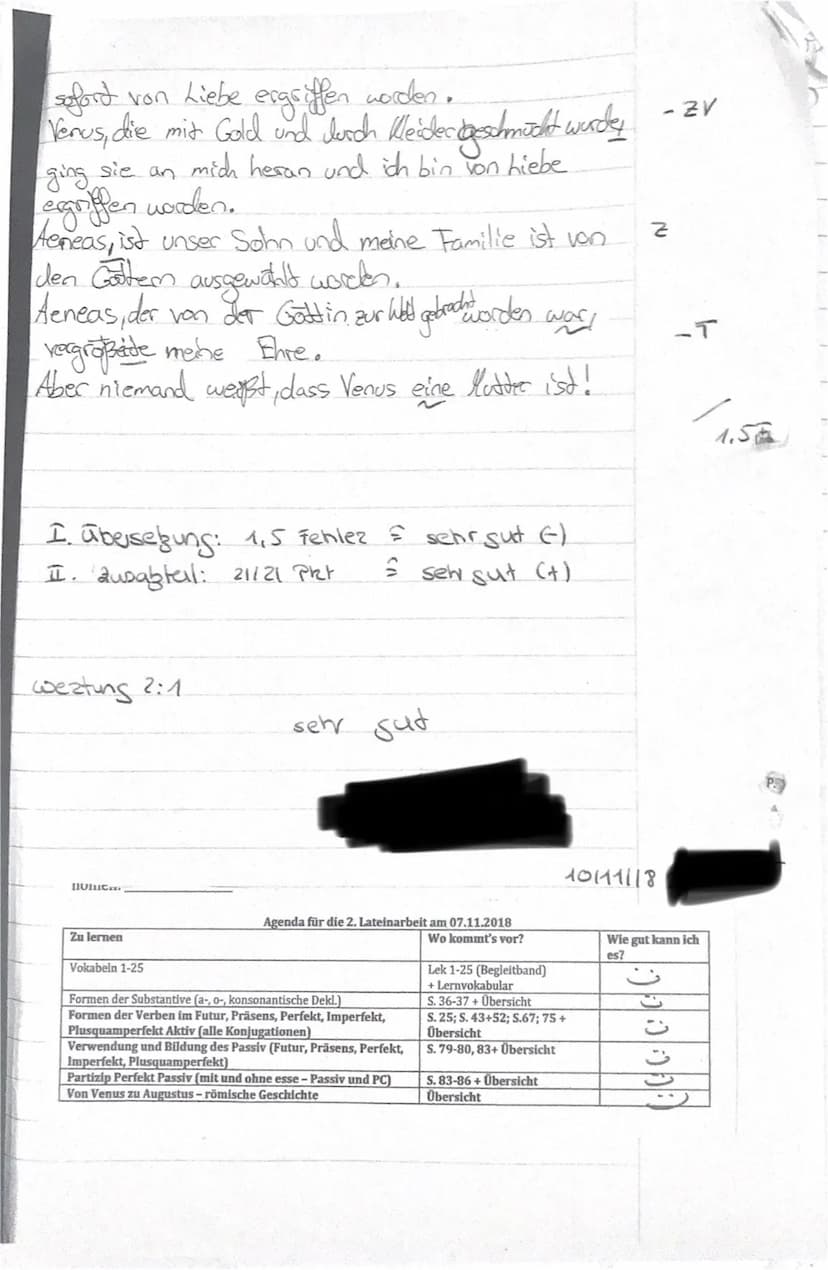 sofort von Liebe ergriffen worden.
Venus, die mit Gold und durch Kleider geschmückt wurde, - ZV
ging sie an mich heran und ich bin von Liebe
ergriffen worden.
Aeneas, ist unser Sohn und meine Familie ist von Z
den Göttern ausgewählt worden.
Aeneas, der von der Göttin zur Welt gebracht worden war, -T
vergrößerte meine Ehre.
Aber niemand weißt, dass Venus eine Mutter ist!
/ 1,5
I. Übersetzung: 1,5 Fehler ≙ sehr gut (-)
II. Zusatzteil: 21/21 Pkt ≙ sehr gut (+)
Wertung 2:1
sehr gut
10/11/18
Agenda für die 2. Lateinarbeit am 07.11.2018
Zu lernen Wo kommt's vor? Wie gut kann ich
es?
Vokabeln 1-25 Lek 1-25 (Begleitband)
+ Lernvokabular
Formen der Substantive (a-, o-, konsonantische Dekl.) S. 36-37 + Übersicht
Formen der Verben im Futur, Präsens, Perfekt, Imperfekt, S. 25; S. 43+52; S.67; 75 +
Plusquamperfekt Aktiv (alle Konjugationen) Übersicht
Verwendung und Bildung des Passiv (Futur, Präsens, Perfekt, S. 79-80, 83+ Übersicht
Imperfekt, Plusquamperfekt)
Partizip Perfekt Passiv (mit und ohne esse – Passiv und PC) S. 83-86 + Übersicht
Von Venus zu Augustus – römische Geschichte Übersicht